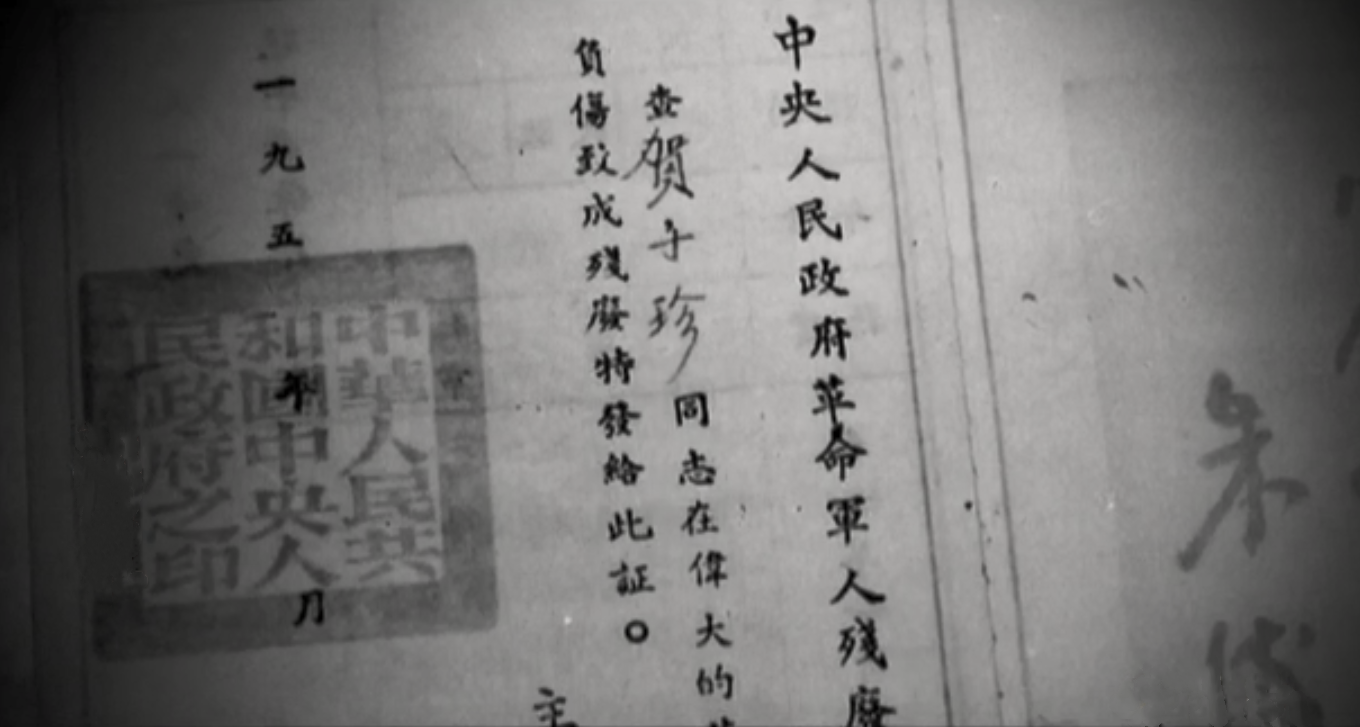 中央人民政府革命軍人殘廢
查賀子珍同志在偉大的
負傷致成殘廢特發給此証。
主
一九五年月
中華人民共
和國中央人
民政府之印
朱